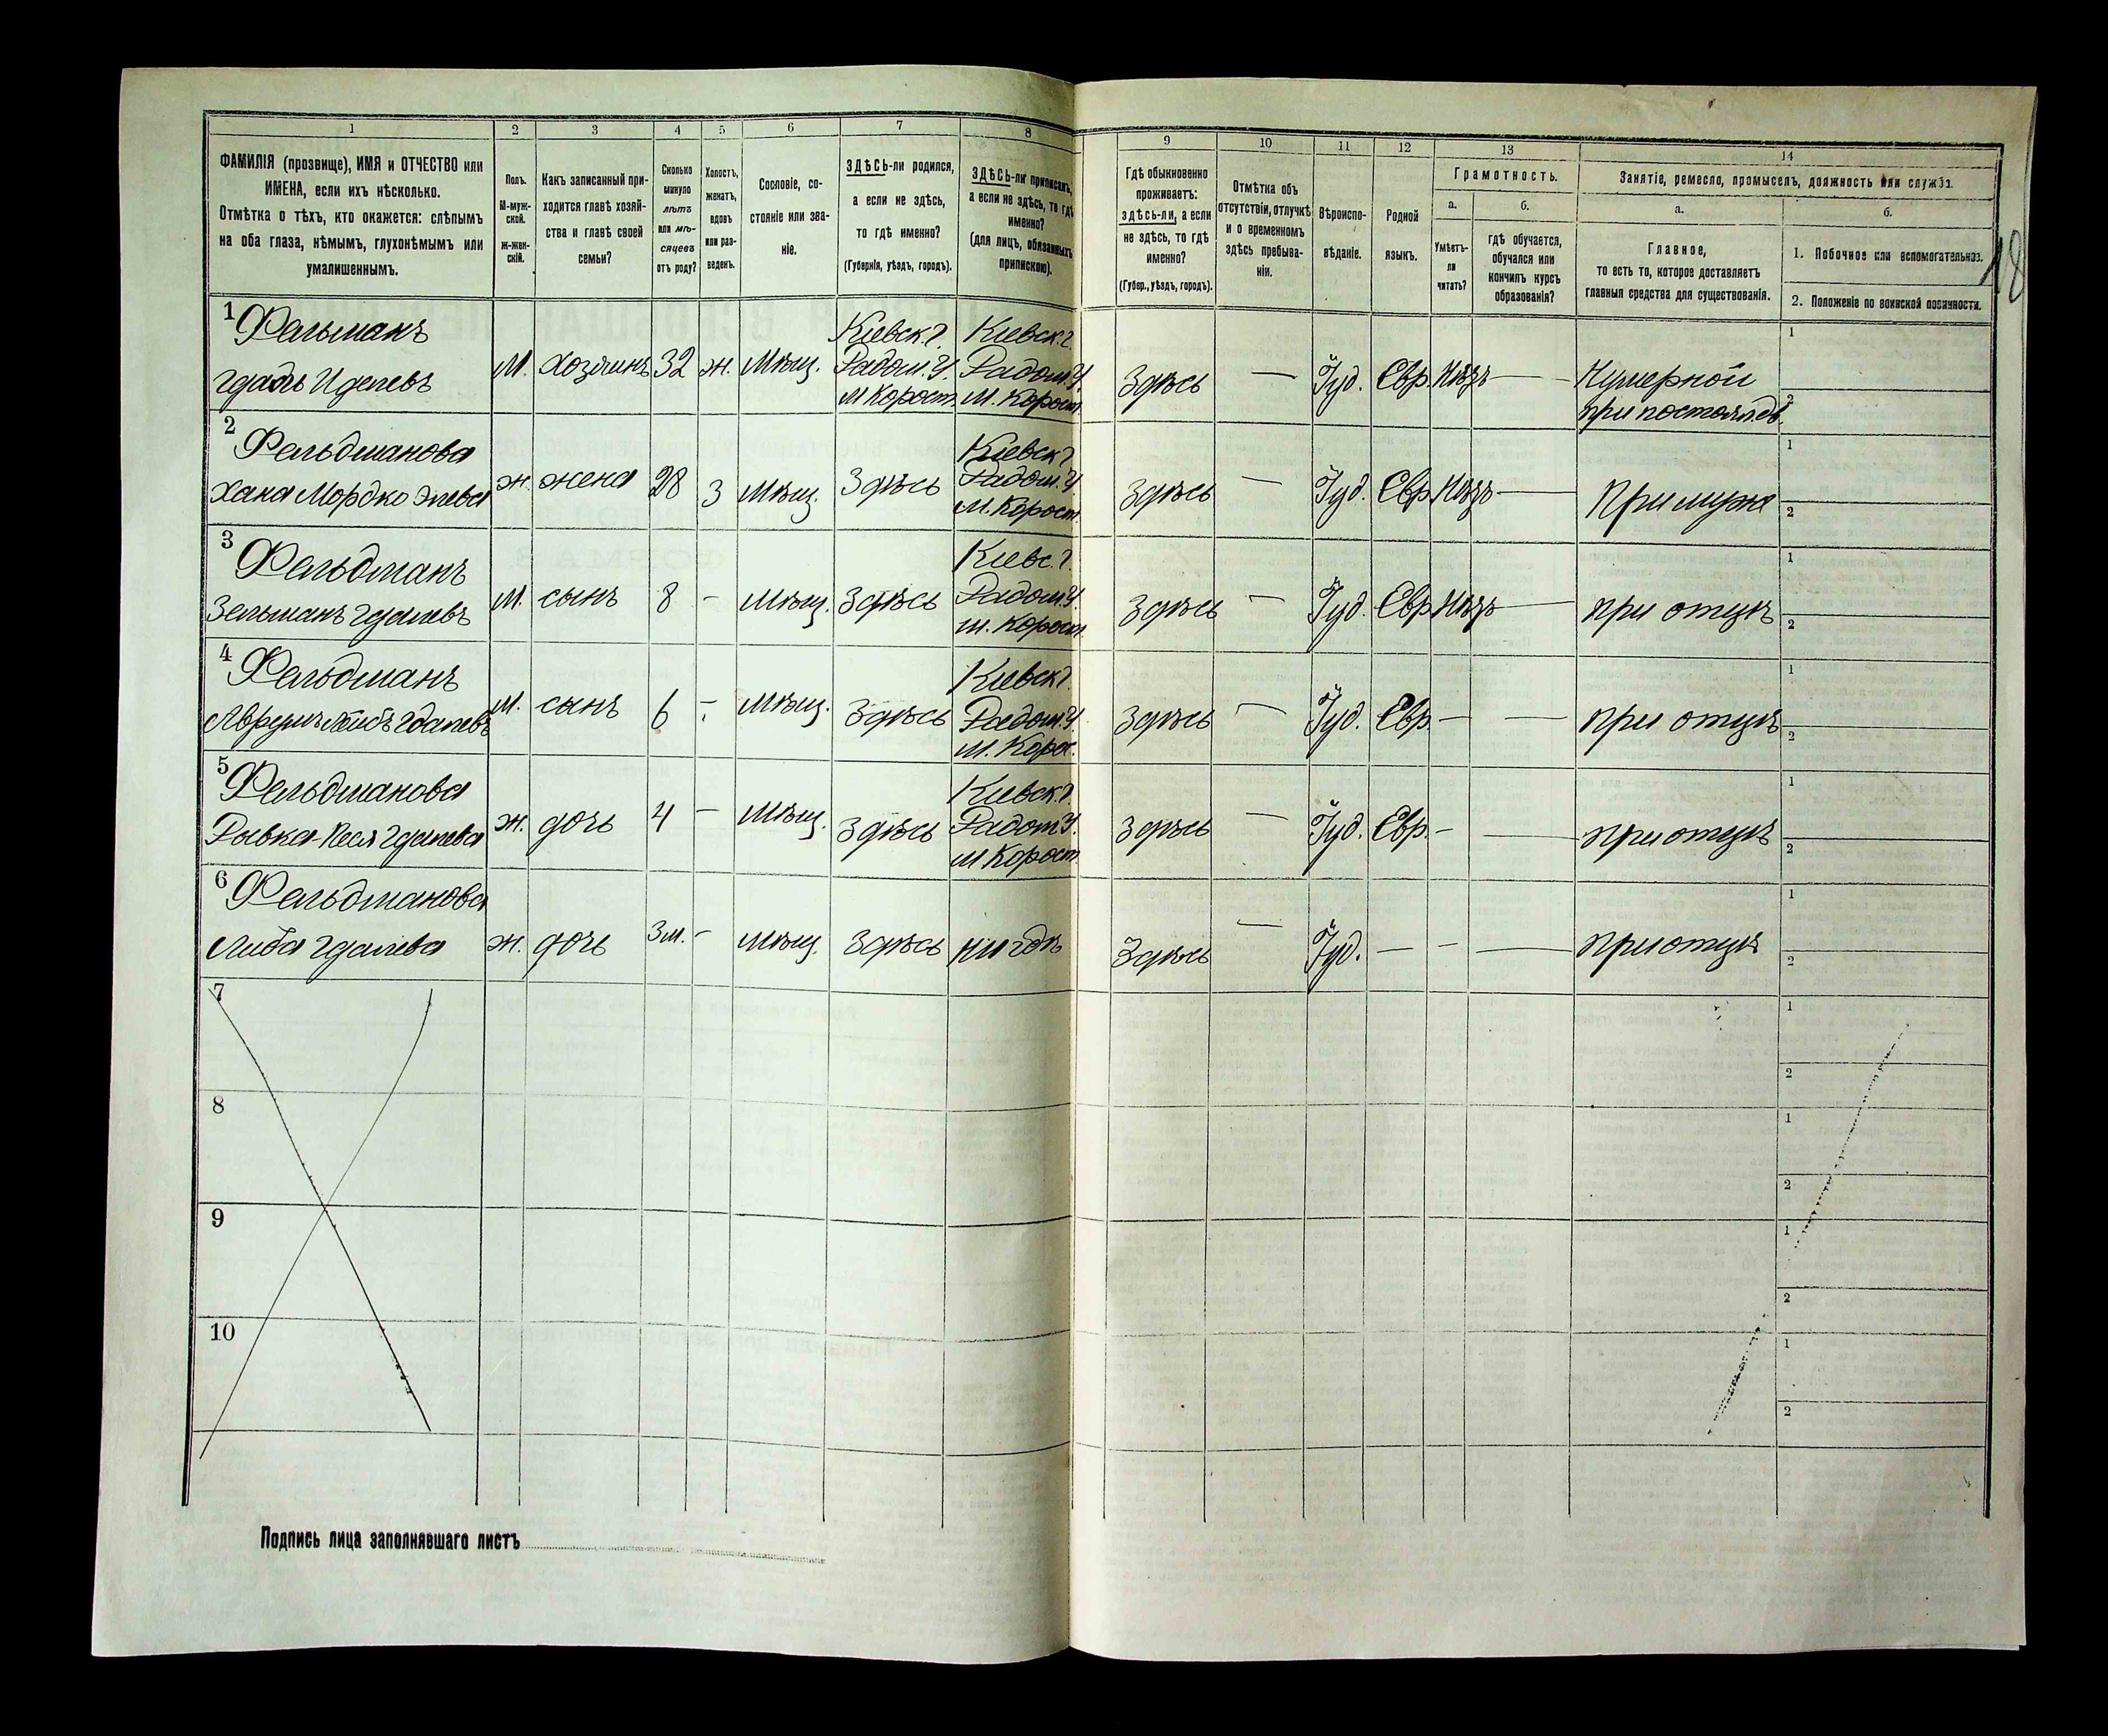 1 2 3 4 5 6 7 8 9 10 11 12 13 14
ФАМИЛІЯ (прозвище), ИМЯ и ОТЧЕСТВО или
ИМЕНА, если ихъ нѣсколько.
Отмѣтка о тѣхъ, кто окажется: слѣпымъ
на оба глаза, нѣмымъ, глухонѣмымъ или
умалишеннымъ.
Полъ.
М-муж-
ской.
ж-жен-
скій.
Какъ записанный при-
ходится главѣ хозяй-
ства и главѣ своей
семьи?
Сколько
минуло
лѣтъ
или мѣ-
сяцевъ
отъ роду?
Холостъ,
женатъ,
вдовъ
или раз-
веденъ.
Сословіе, со-
стояніе или зва-
ніе.
ЗДѢСЬ-ли родился,
а если не здѣсь,
то гдѣ именно?
(Губернія, уѣздъ, городъ).
ЗДѢСЬ-ли приписанъ,
а если не здѣсь, то гдѣ
именно?
(для лицъ, обязанныхъ
припискою).
Гдѣ обыкновенно
проживаетъ:
здѣсь-ли, а если
не здѣсь, то гдѣ
именно?
(Губер., уѣздъ, городъ).
Отмѣтка объ
отсутствіи, отлучкѣ
и о временномъ
здѣсь пребыва-
ніи.
Вѣроиспо-
вѣданіе.
Родной
языкъ.
Грамотность.
а.
Умѣетъ-
ли
читать?
б.
гдѣ обучается,
обучался или
кончилъ курсъ
образованія?
Занятіе, ремесло, промыселъ, должность или служба.
а.
Главное,
то есть то, которое доставляетъ
главныя средства для существованія.
б.
1. Побочное или вспомогательное.
2. Положеніе по воинской повинности.
18
1 Фельманъ
Гдаль Иделевъ
М. хозяинъ 32 ж. Мѣщ.
Кіевск. г.
Радом. У.
М Корост.
Кіевск. г.
Радом. У.
М. Корост.
Здѣсь — Іуд. Евр. Нѣтъ —
при постоял. дв.
1
2
2 Фельдманова
Хана Мордко
ж. жена 28 З Мѣщ. Здѣсь
Кіевск г
Радом. У
М. Корост.
Здѣсь — Іуд. Евр. Нѣтъ — При мужѣ
1
2
3 Фельдманъ
Зельманъ Гдалевъ
М. сынъ 8 - Мѣщ. Здѣсь
Кіевс. г.
Радом. У.
м. Корост
Здѣсь — Іуд. Евр Нѣтъ — при отцѣ
1
2
4 Фельдманъ
Аврумъ Лейбъ Гдалевъ
М. сынъ 6 - Мѣщ. Здѣсь
Кіевск г.
Радом. У
М. Корос.
Здѣсь — Іуд. Евр. — — при отцѣ
1
2
5 Фельдманова
Рывка-Песя Гдалева
ж. дочь 4 — Мѣщ. Здѣсь
Кіевск. г.
Радом У.
М Корост
Здѣсь — Іуд. Евр. - — при отцѣ
1
2
6 Фельдманова
Либа Гдалева
ж. дочь 3 м. - Мѣщ. Здѣсь нигдѣ
Здѣсь — Іуд. — - — при отцѣ
1
2
7
1
2
8
1
2
9
1
2
10
1
2
Подпись лица заполнявшаго листъ